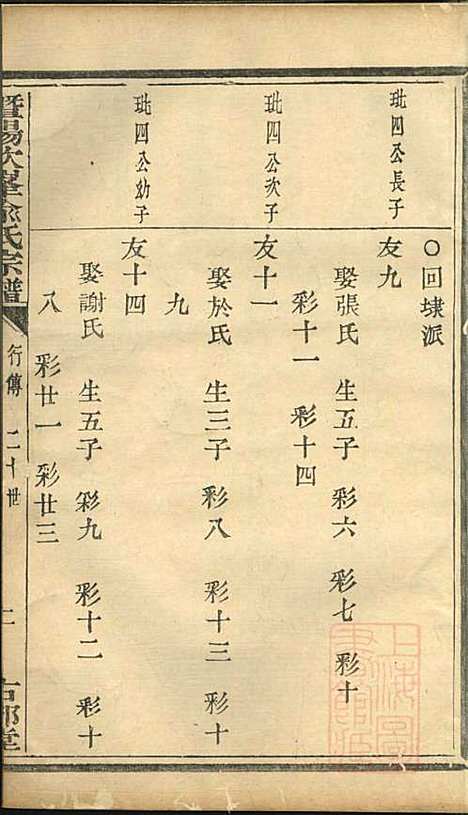 ○回埭派
玭四公長子
友九
娶張氏 生五子 彩六 彩七 彩十
彩十一 彩十四
玭四公次子
友十一
娶於氏 生三子 彩八 彩十三 彩十
九
玭四公幼子
友十四
娶謝氏 生五子 彩九 彩十二 彩十
八 彩廿一 彩廿三
暨陽次峯俞氏宗譜
行傳 二十世
上海圖書館藏